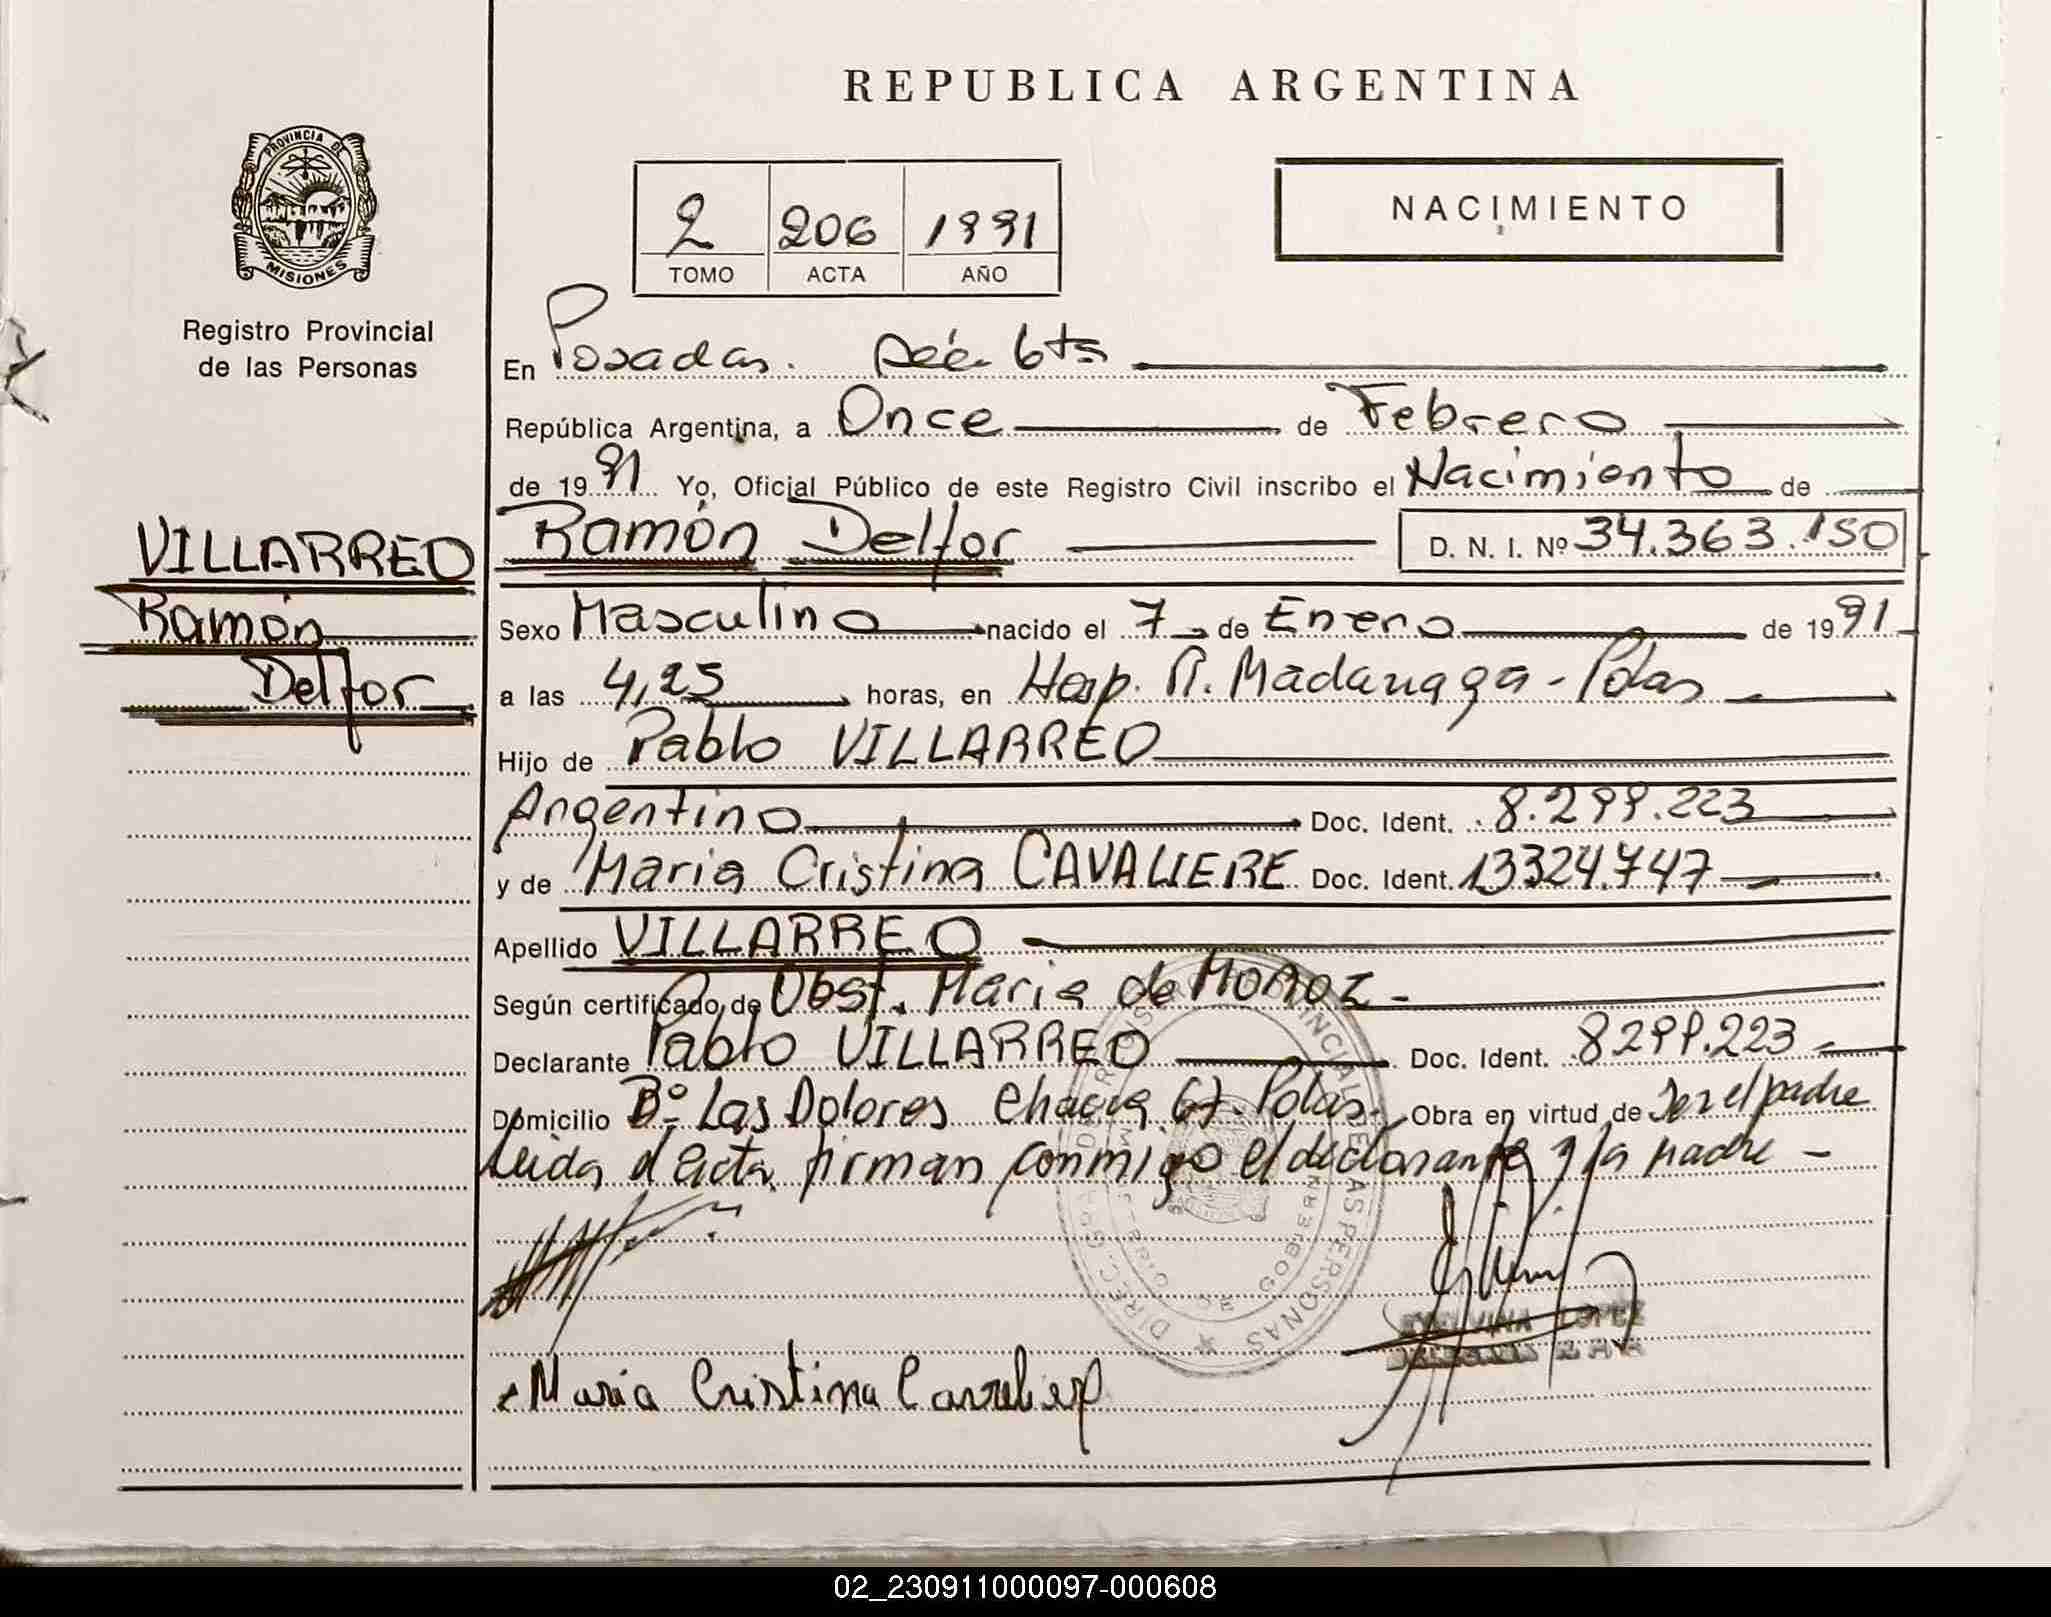 REPUBLICA ARGENTINA
PROVINCIA DE MISIONES
Registro Provincial
de las Personas
2 206 1991
TOMO ACTA AÑO
NACIMIENTO
En Posadas.
República Argentina, a Once de Febrero
de 1991 Yo, Oficial Público de este Registro Civil inscribo el Nacimiento de
VILLARREO
Ramón
Delfor
Ramón Delfor D. N. I. Nº 34.363.150
Sexo Masculino nacido el 7 de Enero de 1991
a las 4,25 horas, en Hosp. R. Madariaga - Pdas
Hijo de Pablo VILLARREO
Argentino Doc. Ident. 8.299.223
y de Maria Cristina CAVALIERE Doc. Ident. 13324.747
Apellido VILLARREO
Según certificado de Obst. Maria de
Declarante Pablo VILLARREO Doc. Ident. 8299.223
Domicilio Bº Las Dolores Chacra 67. Pdas. Obra en virtud de Ser el padre
Leida el acta firman conmigo el declarante y la madre -
Maria Cristina Cavaliere
LOPEZ
02_230911000097-000608